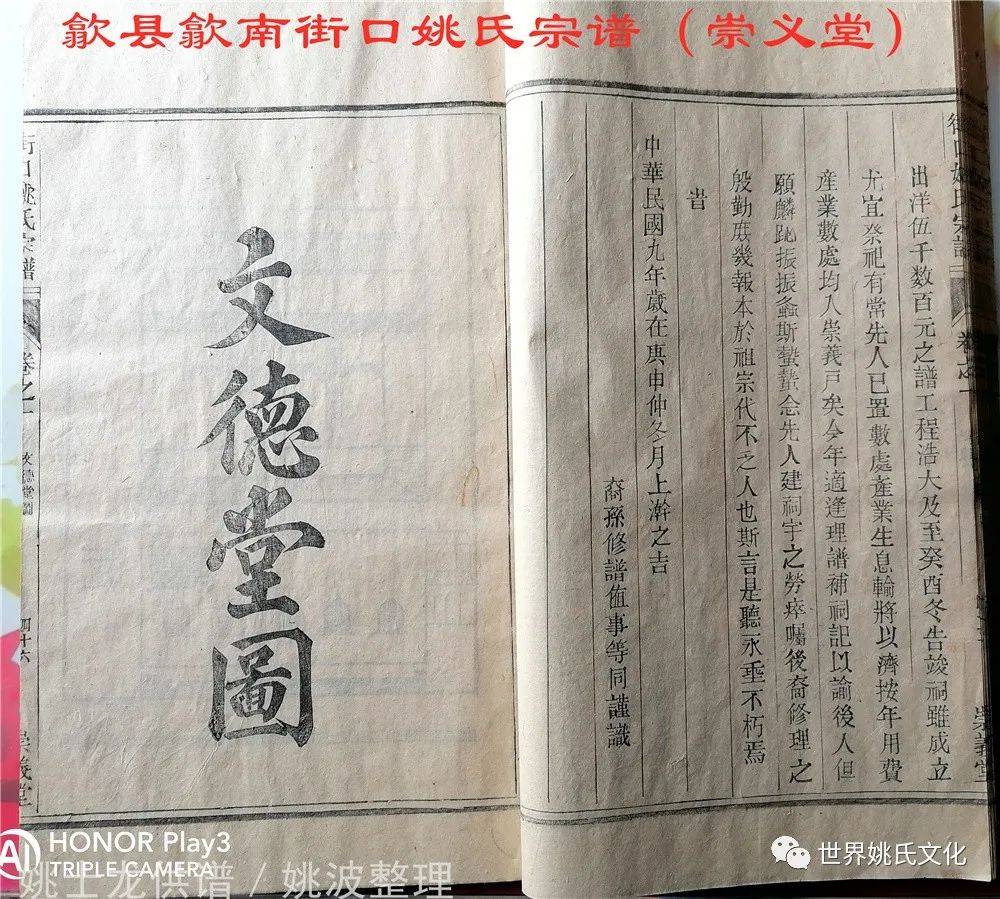 歙县歙南街口姚氏宗谱（崇义堂）
出洋伍千数百元之譜工程浩大及至癸酉冬告竣祠雖成立
尤宜祭祀有常先人已置數處產業生息輪將以濟按年用費
產業數處均入崇義戸矣今年適逢理譜補祠記以諭後人但
願麟趾振振螽斯蟄蟄念先人建祠宇之勞瘁囑後裔修理之
殷勤庶幾報本於祖宗代不之人也斯言是聽永垂不朽焉
旹
中華民國九年歲在庚申仲冬月上澣之吉
裔孫修譜值事等同謹識
街口姚氏宗譜
卷之一
崇義堂
文德堂圖
街口姚氏宗譜
卷之一
文德堂圖
四十六
崇義堂
HONOR Play3
TRIPLE CAMERA
AI
姚土龙供谱 / 姚波整理
世界姚氏文化